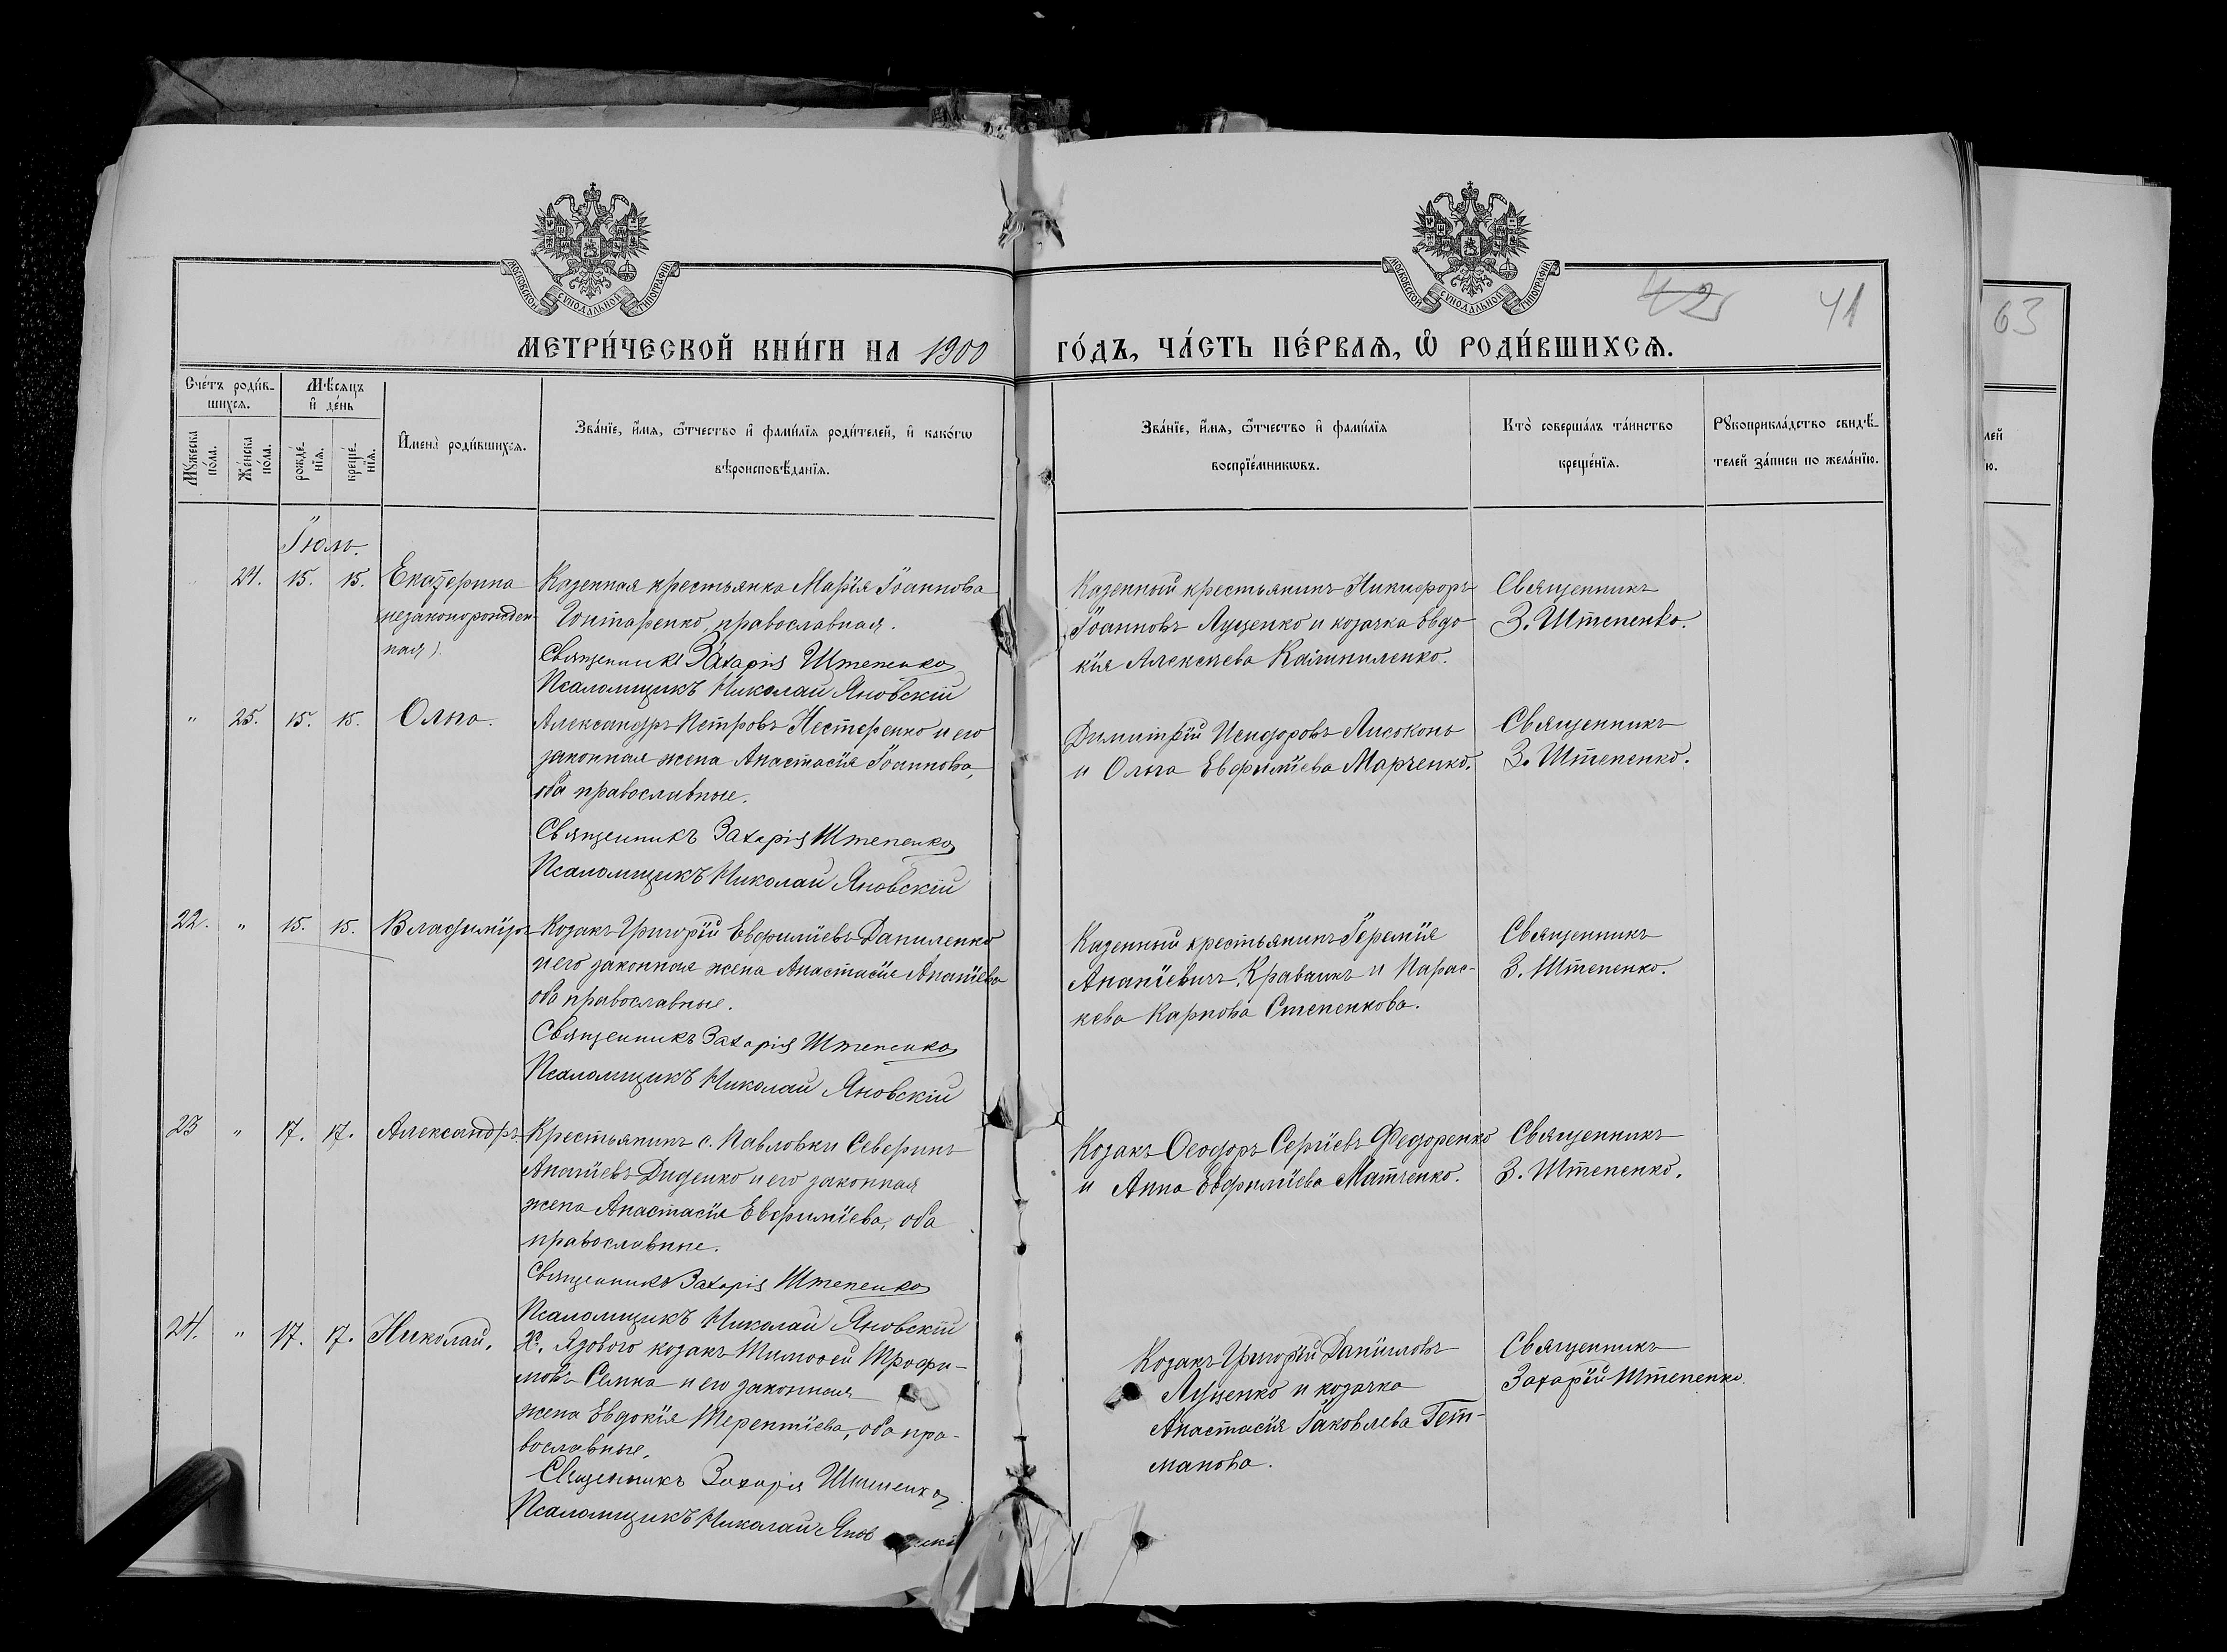 МОСКОВСКОЙ СѴНОДАЛЬНОЙ ТИПОГРАФІИ
МОСКОВСКОЙ СѴНОДАЛЬНОЙ ТИПОГРАФІИ
42 41
63
МЕТРИ́ЧЕСКОЙ КНИ́ГИ НА 1900 ГО́ДЪ, ЧА́СТЬ ПЕ́РВАѦ, Ѡ҆ РОДИ́ВШИХСѦ.
Сче́тъ роди́в-
шихсѧ.
Мꙋ́жеска
по́ла.
Же́нска
по́ла.
Мѣ́сѧцъ
и҆ де́нь
рожде́-
нїѧ.
креще́-
нїѧ.
И҆мена̀ роди́вшихсѧ.
Зва́нїе, и҆́мѧ, ѻ҆́тчество и҆ фами́лїѧ роди́телей, и҆ како́гѡ
вѣроисповѣ́данїѧ.
Зва́нїе, и҆́мѧ, ѻ҆́тчество и҆ фами́лїѧ
воспрїе́мникѡвъ.
Кто̀ соверша́лъ та́инство
креще́нїѧ.
Рꙋкоприкла́дство свидѣ́-
телей за́писи по жела́нїю.
лей
ю.
Іюль.
24. 15. 15. Екатерина
(незаконорожден-
ная).
Казенная крестьянка Марія Іоаннова
Гонтаренко, православная.
Священникъ Захарія Штепенко
Псаломщикъ Николай Яновскій
Казенный крестьянинъ Никифоръ
Іоанновъ Луценко и козачка Евдо
кія Алексѣева
Священникъ
З. Штепенко.
" 25. 15. 15. Ольга.
Александръ Петровъ Нестеренко и его
законная жена Анастасія Іоаннова,
оба православные.
Священникъ Захарія Штепенко
Псаломщикъ Николай Яновскій
Димитрій Исидоровъ Лисоконь
и Ольга Евфиміева Марченко.
Священникъ
З. Штепенко.
22. " 15. 15. Владиміръ
Козакъ Григорій Евфиміевъ Даниленко
и его законная жена Анастасія Ананіева
оба православные.
Священникъ Захарія Штепенко
Псаломщикъ Николай Яновскій
Казенный крестьянинъ Іеремія
Ананіевичъ Кравчикъ и Парас-
кева Карпова Степенкова.
Священникъ
З. Штепенко.
23 " 17. 17. Александръ
Крестьянинъ с. Павловки Северинъ
Ананіевъ Диденко и его законная
жена Анастасія Евфиміева, оба
православные.
Священникъ Захарія Штепенко
Псаломщикъ Николай Яновскій
Козакъ Ѳеодоръ Сергіевъ Федоренко
и Анна Евфиміева Матченко.
Священникъ
З. Штепенко.
24. " 17. 17. Николай.
х. Ядового козакъ Тимоѳей Трофи-
мовъ Семка и его законная
жена Евдокія Терентіева, оба пра-
вославные.
Священникъ Захарія Штепенко
Псаломщикъ Николай Яновскій
Козакъ Григорій Даніиловъ
Луценко и козачка
Анастасія Іаковлева Гет-
манова.
Священникъ
Захарій Штепенко.